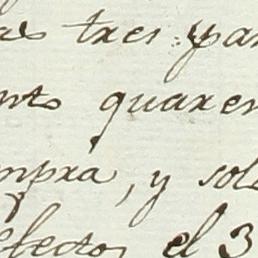 as tres par
nto quaren
mpra, y solo
efectos el 3